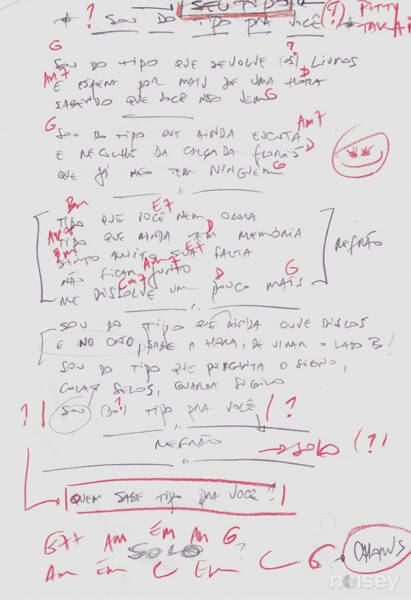 SEU TIPO
* ? SOU DO TIPO PRA VOCÊ (?) * PITTY
G
SOU DO TIPO QUE DEVOLVE (OS) LIVROS ?
Am7 D
E ESPERA POR MAIS DE UMA HORA
SABENDO QUE VOCÊ NÃO VEM G
G Am7
SOU DO TIPO QUE AINDA ESCUTA
E RECOLHE DA CALÇADA FLORES D
QUE JÁ NÃO TEM NINGUÉM G
Bm E7
TIPO QUE VOCÊ NEM
Am7
TIPO QUE AINDA TEM MEMÓRIA
Bm E7
SINTO MUITO SUA FALTA REFRÃO
Am7
NÃO FICAR JUNTO
Em7 D G
ME DISSOLVE UM POUCO MAIS
SOU DO TIPO QUE AINDA OUVE DISCOS
E NO CASO, SABE A HORA, DE VIRAR O LADO B!
SOU DO TIPO QUE PERGUNTA O SIGNO,
COLA SELOS, GUARDA SIGILO
? | SOU (DO?) TIPO PRA VOCÊ | ?
REFRÃO → SOLO (?)
| QUEM SABE TIPO PRA VOCÊ? |
G7+ Am Em Am G
SOLO ?
Am Em C Em C G
noisey